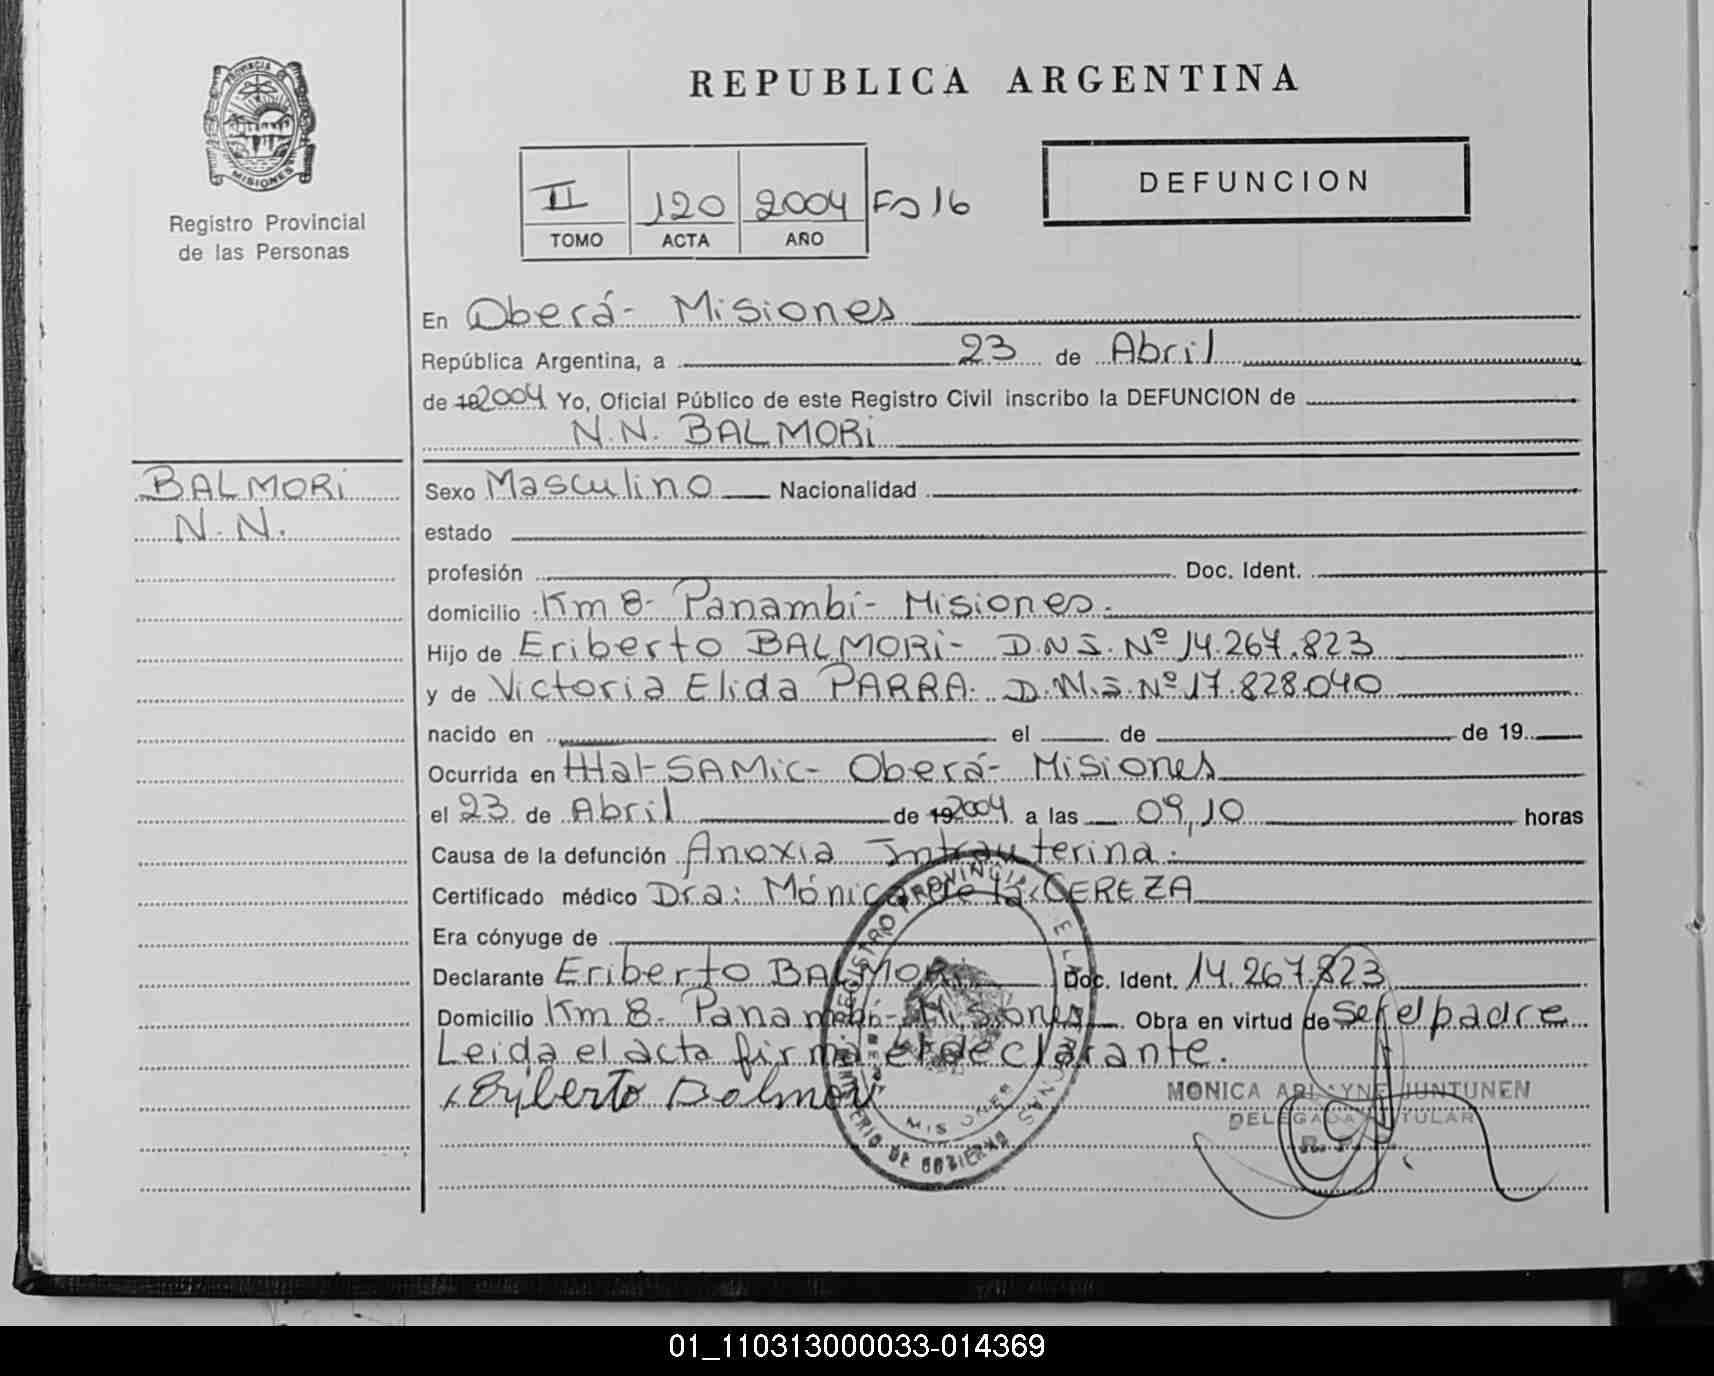 REPUBLICA ARGENTINA
PROVINCIA
MISIONES
Registro Provincial
de las Personas
II 120 2004 Fo 16
TOMO ACTA AÑO
DEFUNCION
En Oberá- Misiones
República Argentina, a 23 de Abril
de 192004 Yo, Oficial Público de este Registro Civil inscribo la DEFUNCION de
N.N. BALMORi
BALMORi
N.N.
Sexo Masculino Nacionalidad
estado
profesión Doc. Ident.
domicilio Km 8- Panambí- Misiones.
Hijo de Eriberto BALMORi- D.N.I. Nº 14.267.823
y de Victoria Elida PARRA. D.N.I. Nº 17.828.040
nacido en el de de 19
Ocurrida en Htal SAMic- Oberá- Misiones
el 23 de Abril de 192004 a las 09,10 horas
Causa de la defunción Anoxia Intrauterina.
Certificado médico Dra: Mónica de la CEREZA
Era cónyuge de
Declarante Eriberto BALMORi Doc. Ident. 14.267.823
Domicilio Km 8- Panambí- Misiones Obra en virtud de ser el padre
Leida el acta firma el declarante.
Eriberto Balmori
MONICA ARLAYNE JUNTUNEN
DELEGADA TITULAR
MINISTERIO DE GOBIERNO
REGISTRO PROVINCIAL DE LAS PERSONAS
MISIONES
01_110313000033-014369